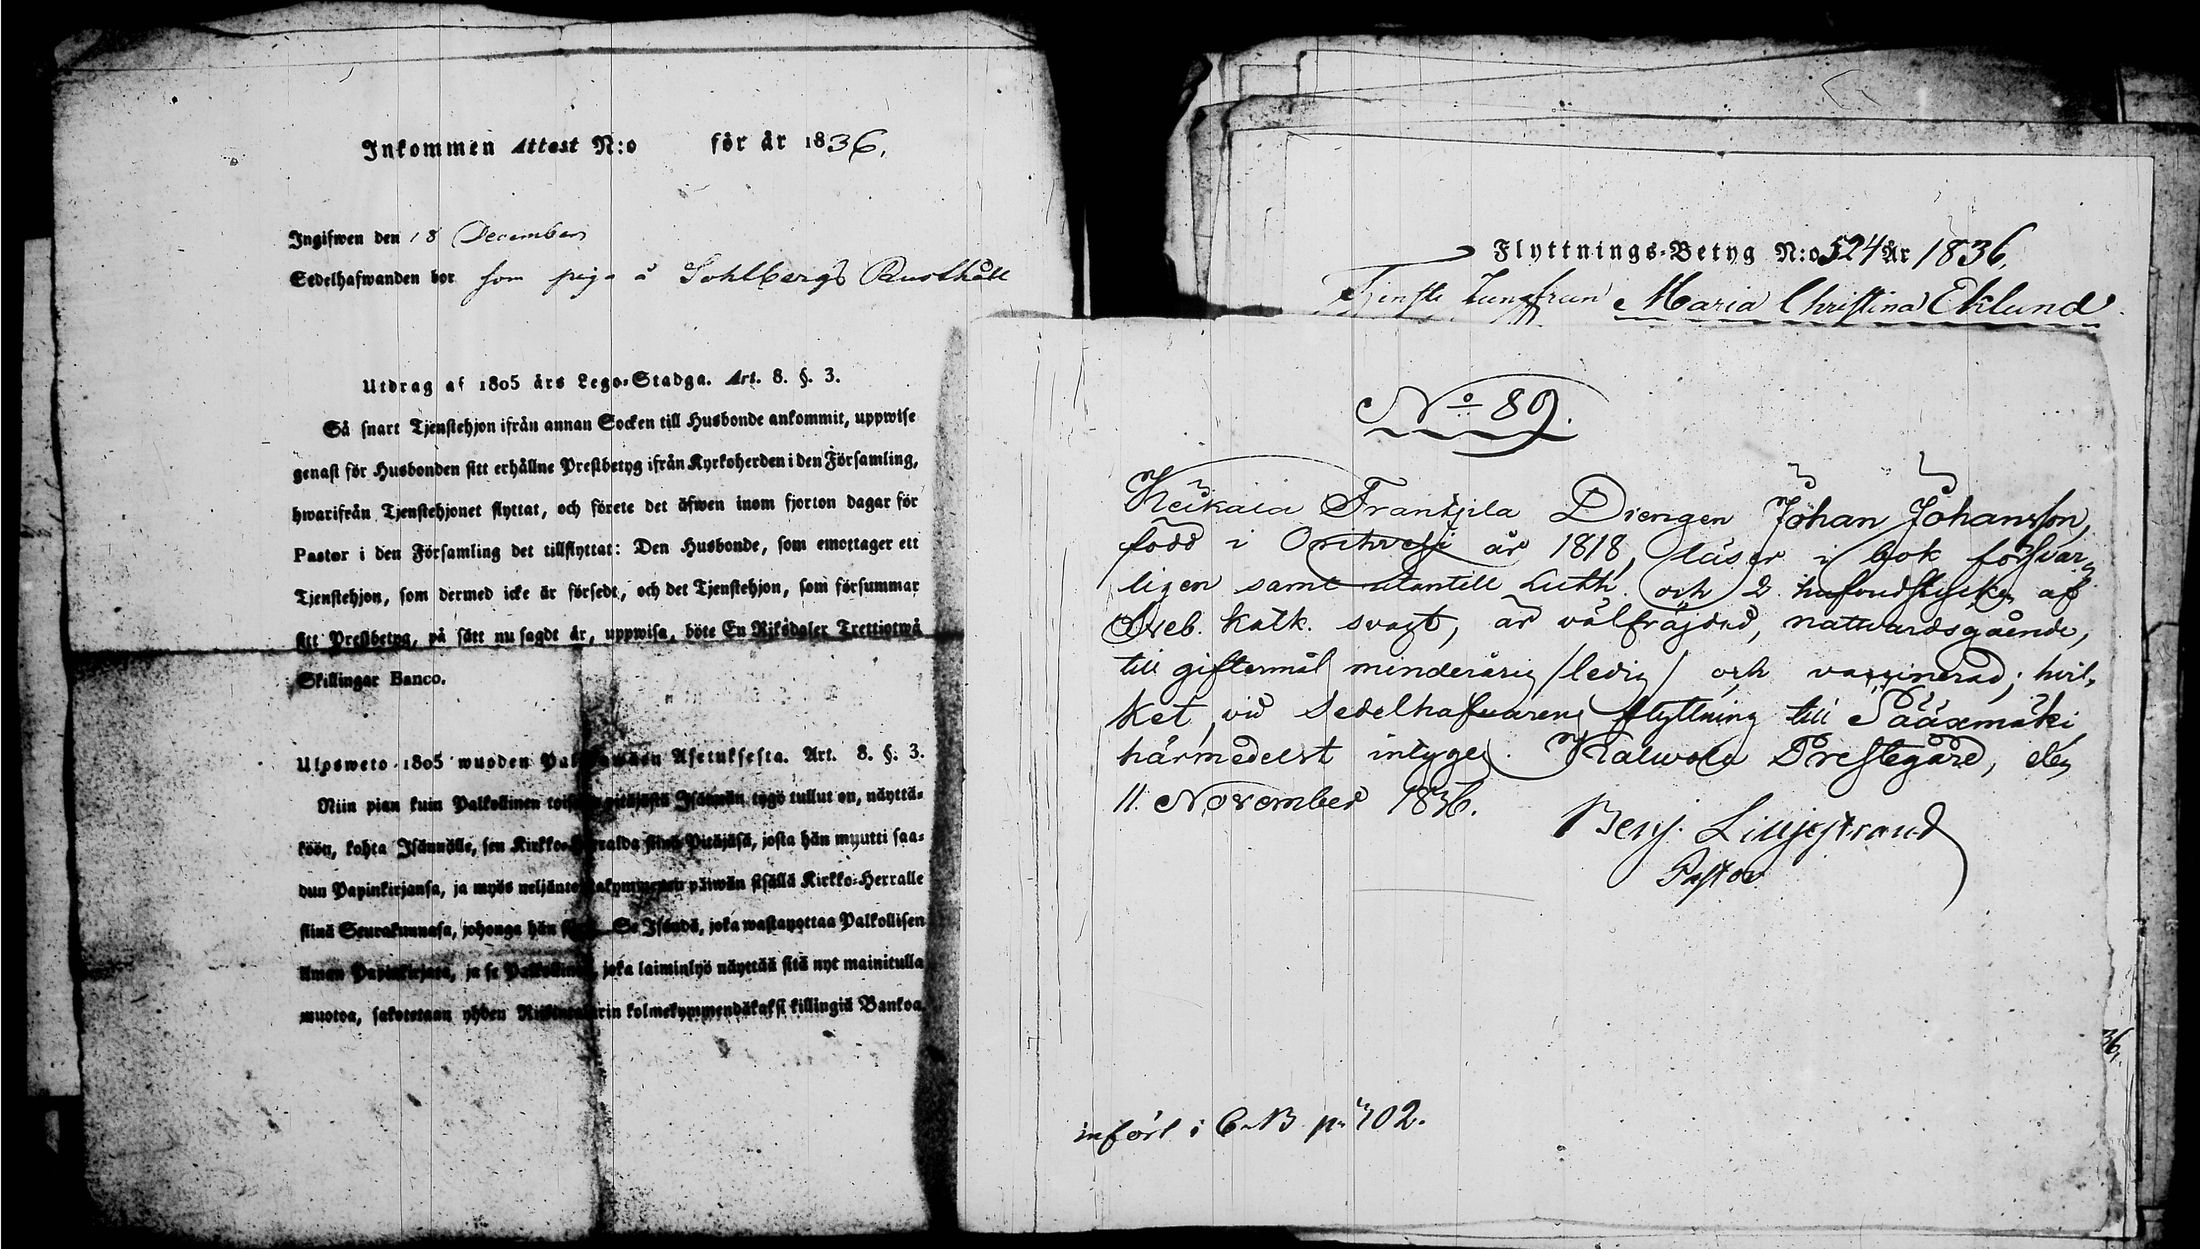 Inkommen Attest N:o för år 1836.
Ingifwen den 18 December
Sedelhafwanden bor som piga å Sohlbergs Rusthåll
Utdrag af 1805 års Lego-Stadga. Art. 8. §. 3.
Så snart Tjenstehjon ifrån annan Socken till Husbonde ankommit, uppwise
genast för Husbonden sitt erhållne Prestbetyg ifrån Kyrkoherden i den Församling,
hwarifrån Tjenstehjonet flyttat, och förete det äfwen inom fjorton dagar för
Pastor i den Församling det tillflyttat: Den Husbonde, som emottager ett
Tjenstehjon, som dermed icke är försedt, och det Tjenstehjon, som försummar
sitt Prestbetyg, på sätt nu sagdt är, uppwisa, böte En Riksdaler Trettiotwå
Skillingar Banco.
Ulosweto 1805 wuoden Asetuksesta. Art. 8. §. 3.
Niin pian kuin Palkollinen Isännän tygö tullut on, näyttä-
köön, kohta Isännälle, sen Kirkko-Herralda siinä Pitäjäsä, josta hän muutti saa-
dun Papinkirjansa, ja myös päiwän sisällä Kirkko-Herralle
siinä Seurakunnasa, johonga hän Se Isändä, joka wastanottaa Palkollisen
ilman Papinkirjata, ja se Palkollinen, joka laiminlyö näyttää sitä nyt mainitulla
muotoa, sakotetaan yhden Riksitalarin kolmekymmendäkaksi killingiä Bankoa.
Flyttnings-Betyg N:o 524 År 1836.
Jungfrun Maria Christina Eklund
No 89.
Keikala Frantsila Drengen Johan Johansson,
född i Orihvesi år 1818, läser i bok försvar-
ligen samt utantill Luth. och 2 hufvudstycken af
Sveb. Katk. svagt, är välfräjdad, nattvardsgående,
till giftermål minderårig /ledig/ och vaccinerad; hvil-
ket vid Sedelhafvarens flyttning till Sääxmäki
härmedelst intygas. Kalwola Prestegård, den
11 November 1836.
Benj. Liljestrand
Pastor
infört i C.B. p. 702.
36,